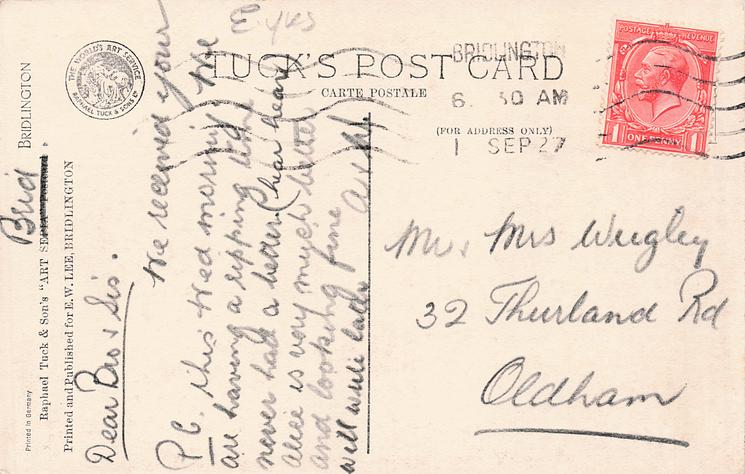 E. yks
TUCK'S POST CARD
CARTE POSTALE
(FOR ADDRESS ONLY)
BRIDLINGTON
6. 30 AM
1 SEP 27
POSTAGE REVENUE
1 ONE PENNY 1
THE WORLD'S ART SERVICE
RAPHAEL TUCK & SONS LD
BRIDLINGTON
Printed in Germany
Raphael Tuck & Son's "ART SEPIA" Postcard.
Printed and Published for E. W. LEE, BRIDLINGTON
Brid
Dear Bro & Sis.
We received your
P.C. this Wed morning. We
are having a ripping time
never had a better (hear hear)
Alice is very much better
and looking fine
will write later A & H
Mr & Mrs Wrigley
32 Thurland Rd
Oldham